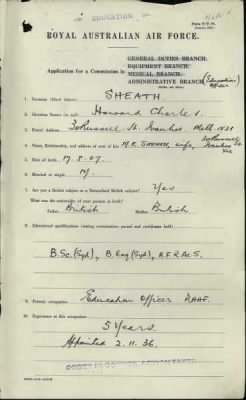 EDUCATION
Form P/P. 38.
ROYAL AUSTRALIAN AIR FORCE.
GENERAL DUTIES BRANCH.
EQUIPMENT BRANCH.
Application for a Commission in MEDICAL BRANCH.
ADMINISTRATIVE BRANCH (Education Officer)
1. Surname (Block letters) SHEATH
2. Christian Names (in full) Howard Charles.
3. Postal Address Russell St. Ivanhoe, Melb. N21
4. Name, Relationship, and address of next of kin M.K. SHEATH, wife, Russell St Ivanhoe Vic
5. Date of birth 17.8.07.
6. Married or single M.
7. Are you a British subject or a Naturalized British subject? Yes
What was the nationality of your parents at birth?
Father British Mother British
8. Educational qualifications (stating examination passed and certificates held)
B.Sc. (Syd), B.Eng (Syd), A.F.R.Ae.S.
9. Present occupation Education Officer RAAF.
10. Experience at this occupation
5 Years.
Appointed 2.11.36.
ORDER IN COUNCIL ACTION TAKEN